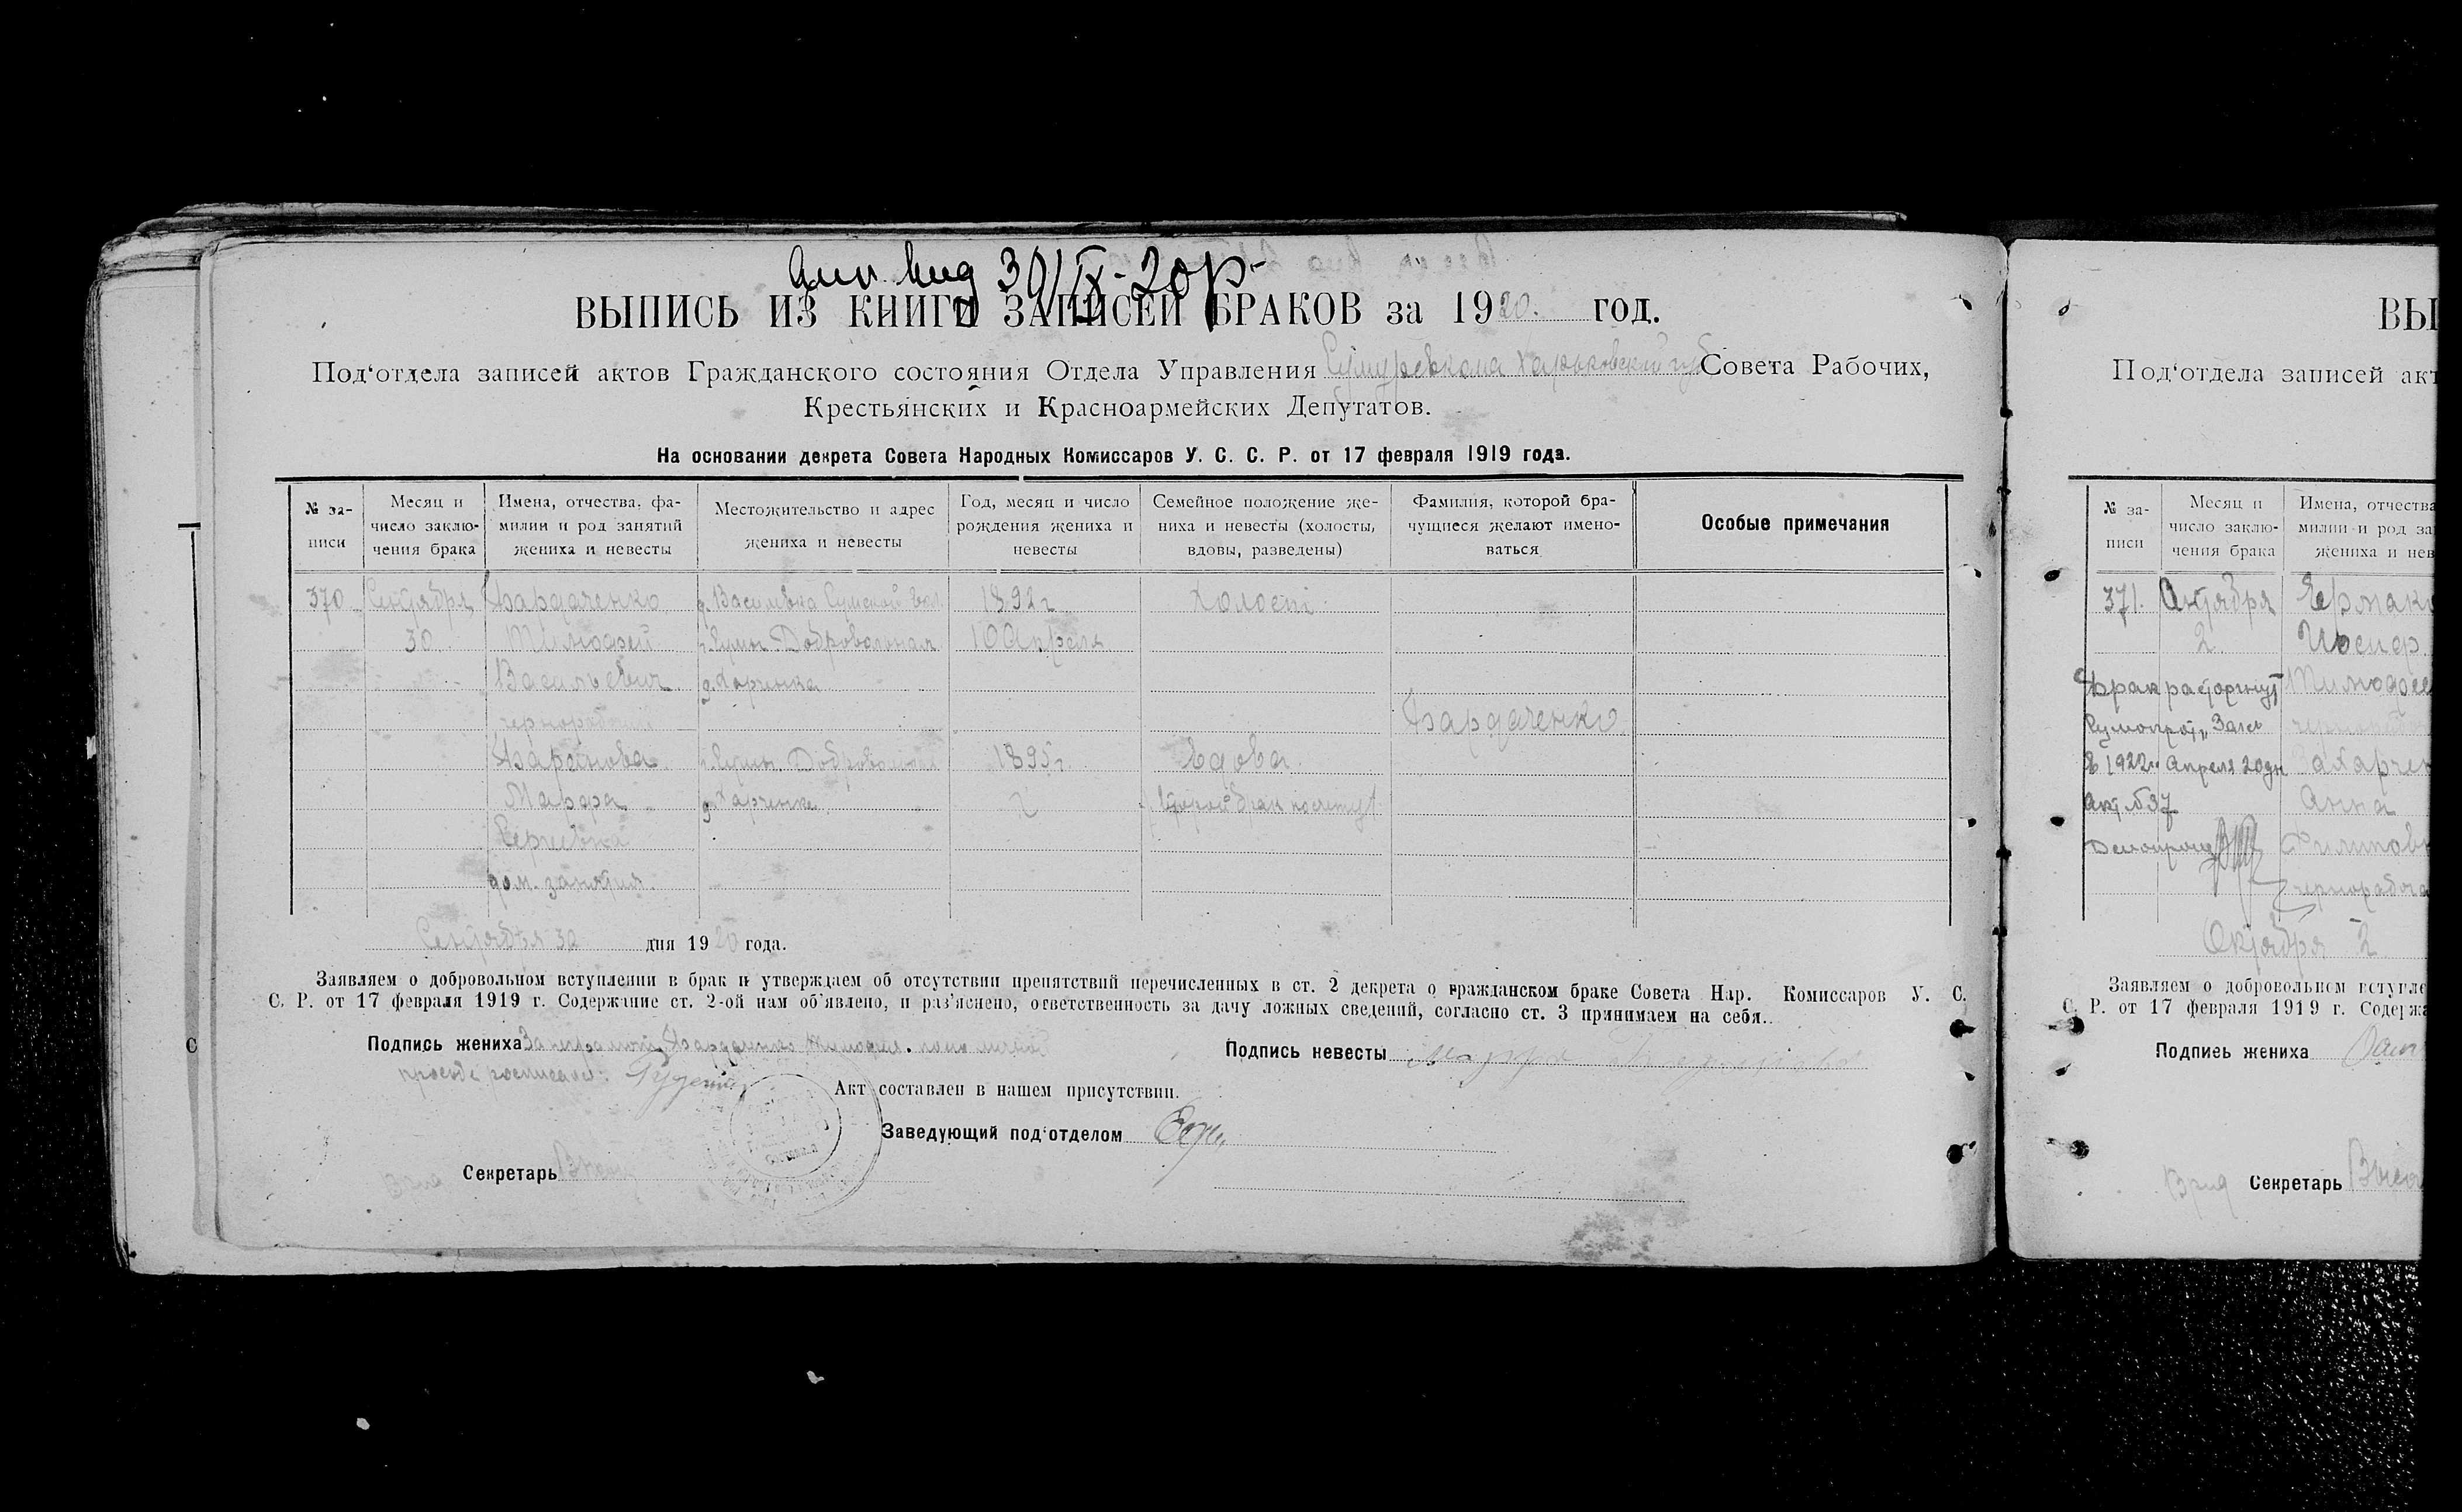 30/IX-20р
ВЫПИСЬ ИЗ КНИГИ ЗАПИСЕЙ БРАКОВ за 1920. год.
Под‘отдела записей актов Гражданского состояния Отдела Управления Сумуревкома Харьковской губ Совета Рабочих,
Крестьянских и Красноармейских Депутатов.
На основании декрета Совета Народных Комиссаров У. С. С. Р. от 17 февраля 1919 года.
№ за-
писи
Месяц и
число заклю-
чения брака
Имена, отчества, фа-
милии и род занятий
жениха и невесты
Местожительство и адрес
жениха и невесты
Год, месяц и число
рождения жениха и
невесты
Семейное положение же-
ниха и невесты (холосты,
вдовы, разведены)
Фамилия, которой бра-
чущиеся желают имено-
ваться
Особые примечания
370 Сентября Бардаченко д. Василевка Сумской вол. 1892 г Холост
30. Тимофей г. Сумы Добровольная 10 Апреля
Васильевич д. Харченка
чернорабочий Бардаченко
Баринова г. Сумы. Добровольная 1895 г Вдова
Марфа д. Харченка Второй брак
Сергиевна
дом. занятия.
Сентября 30 дня 1920 года.
Заявляем о добровольном вступлении в брак и утверждаем об отсутствии препятствий перечисленных в ст. 2 декрета о гражданском браке Совета Нар. Комиссаров У. С.
С. Р. от 17 февраля 1919 г. Содержание ст. 2-ой нам об‘явлено, и раз‘яснено, ответственность за дачу ложных сведений, согласно ст. 3 принимаем на себя..
Подпись жениха За неграмотн. Бардаченко Тимофея. по его личной
просьбе росписался: Подпись невесты Марфа
Акт составлен в нашем присутствии.
Заведующий под‘отделом
Секретарь
С
ВЫ
Под‘отдела записей акт
№ за-
писи
Месяц и
число заклю-
чения брака
Имена, отчества
милии и род за
жениха и нев
371. Октября Ермако
2. Иосиф
Брак расторгнут Тимофее
Запись
В 1922 г. Апреля 20 дн Захарчен
Акт №37 Анна
Делопроиз Филипов
чернорабоча
Октября 2
Заявляем о добровольном вступле
С. Р. от 17 февраля 1919 г. Содержа
Подпись жениха
Врид Секретарь